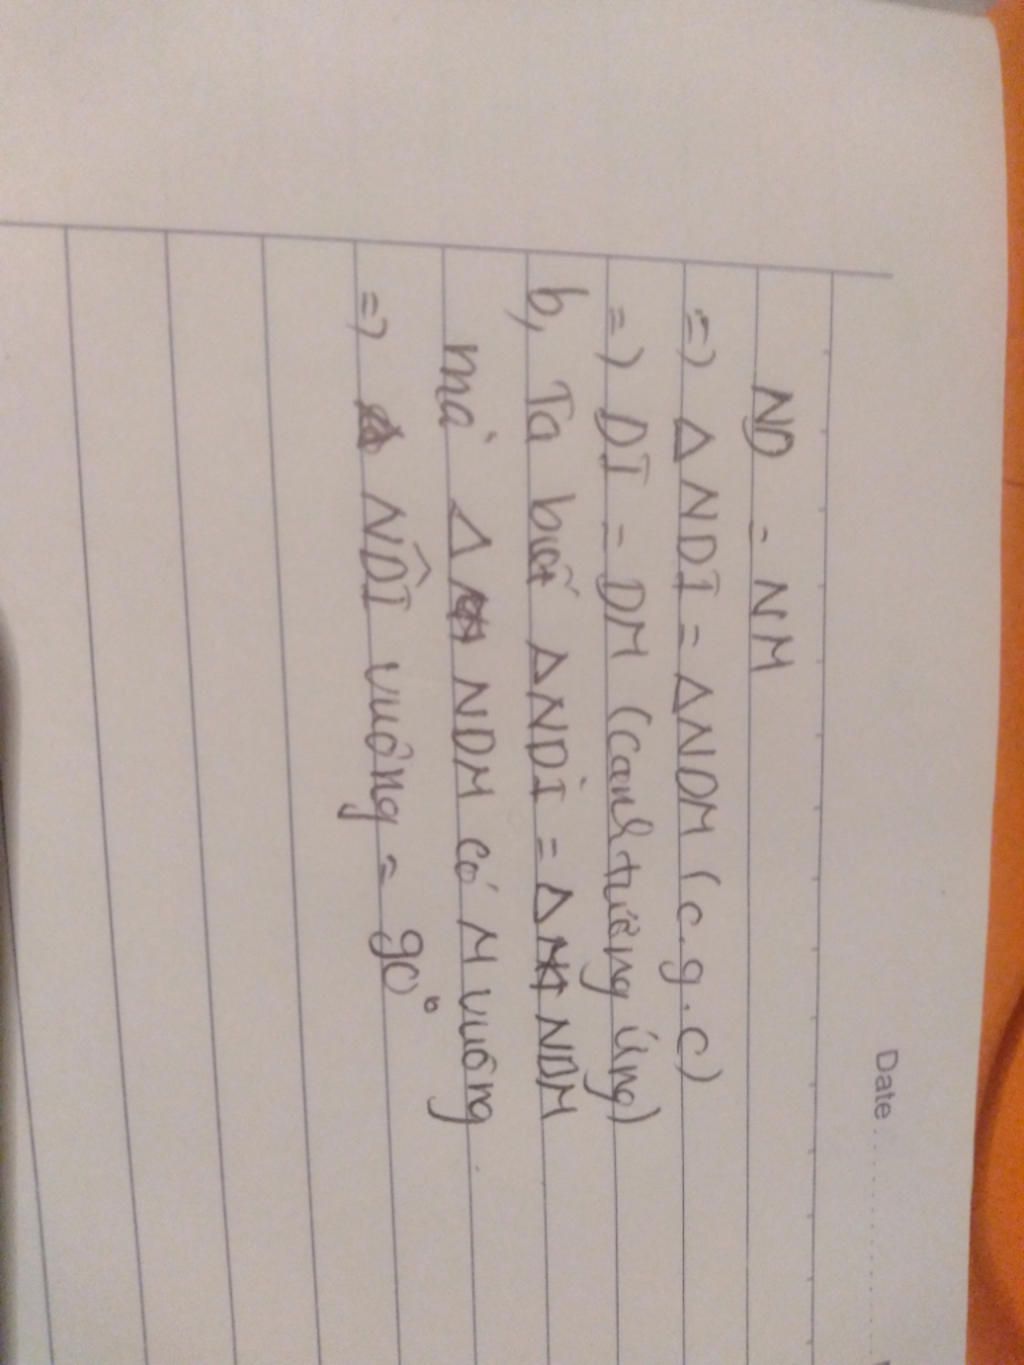 Date
ND = NM
=) Δ NDI = ΔNDM (c.g.c)
=) DI = DM (cạnh tương ứng)
b, Ta biết ΔNDI = Δ NDM
mà Δ NDM có M vuông
=) NDI vuông = 90°